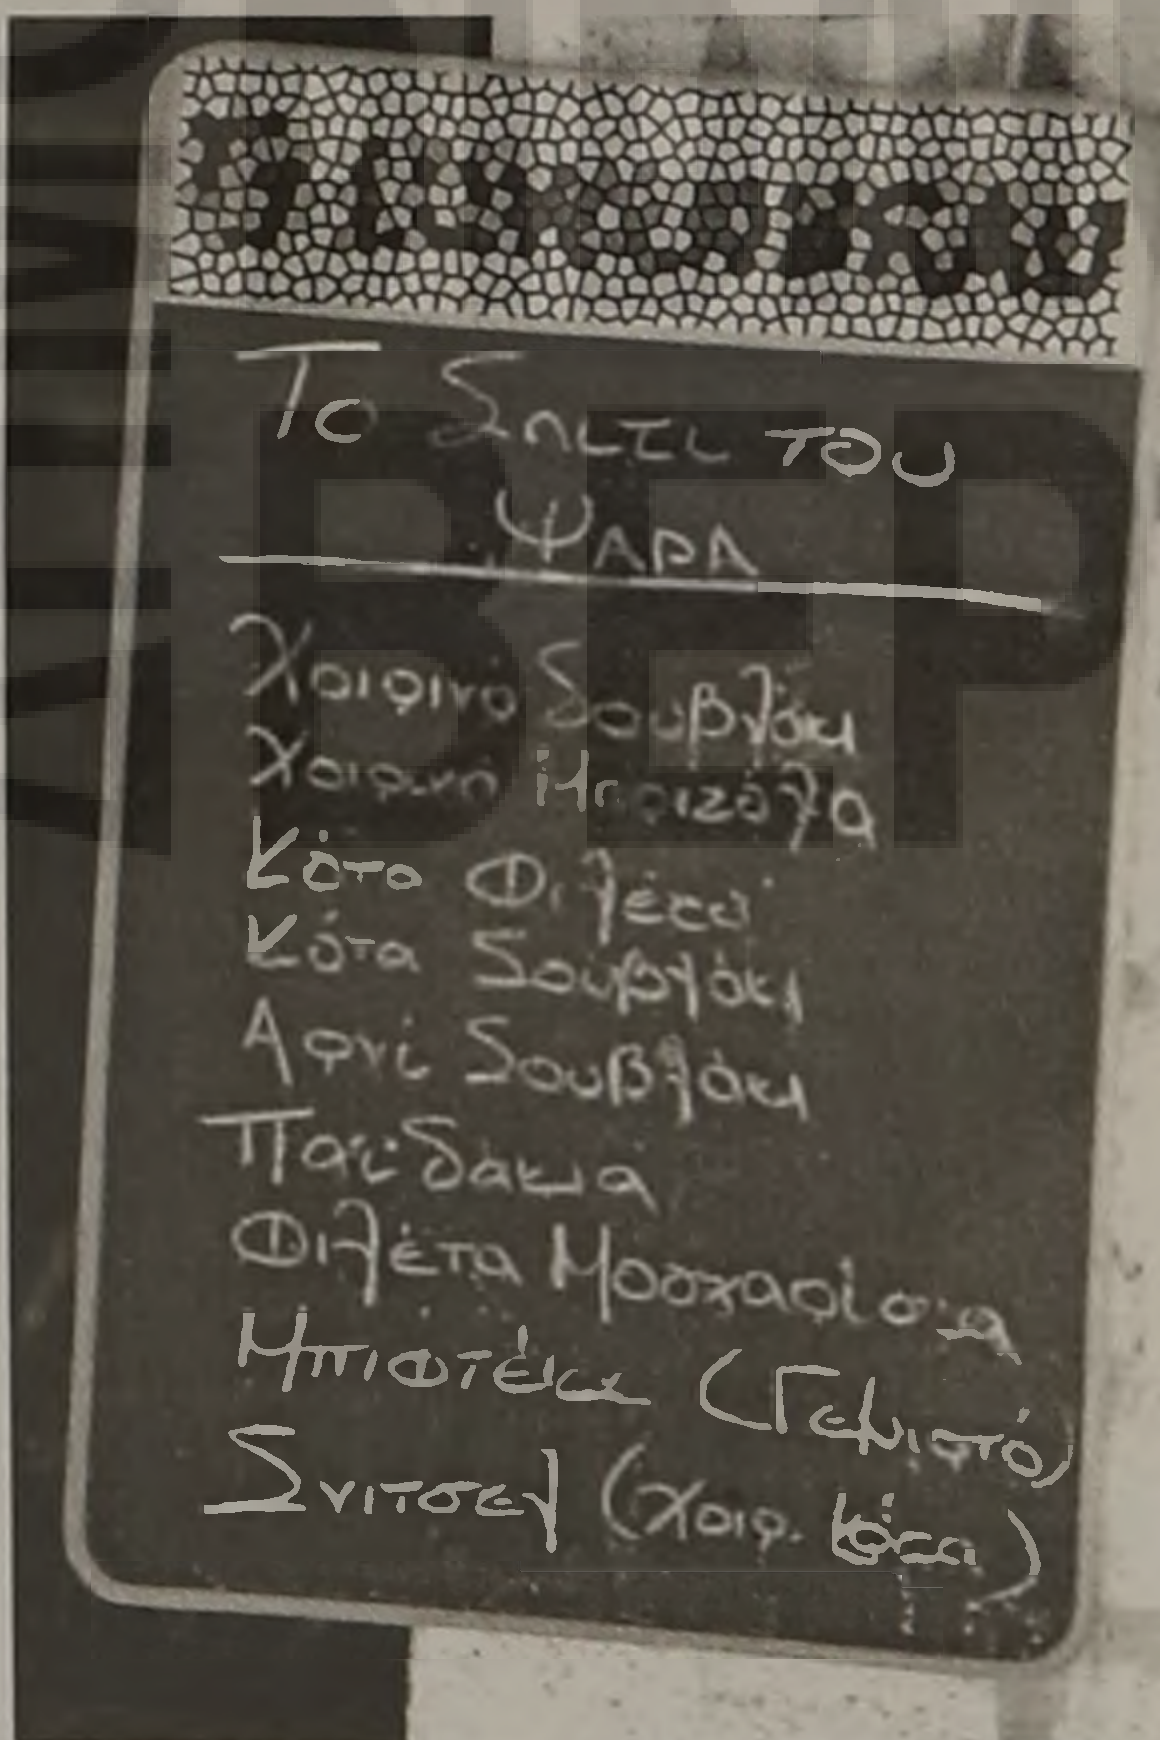 Το Σπιτι του
ΨΑΡΑ
Χοιρινό Σουβλάκι
Χοιρινή Μπριζόλα
Κότα Φιλέτο
Κότα Σουβλάκι
Αρνί Σουβλάκι
Παϊδάκια
Φιλέτα Μοσχαρίσια
Μπιφτέκι (Γεμιστό)
Σνιτσελ (Χοιρ. Κότα)